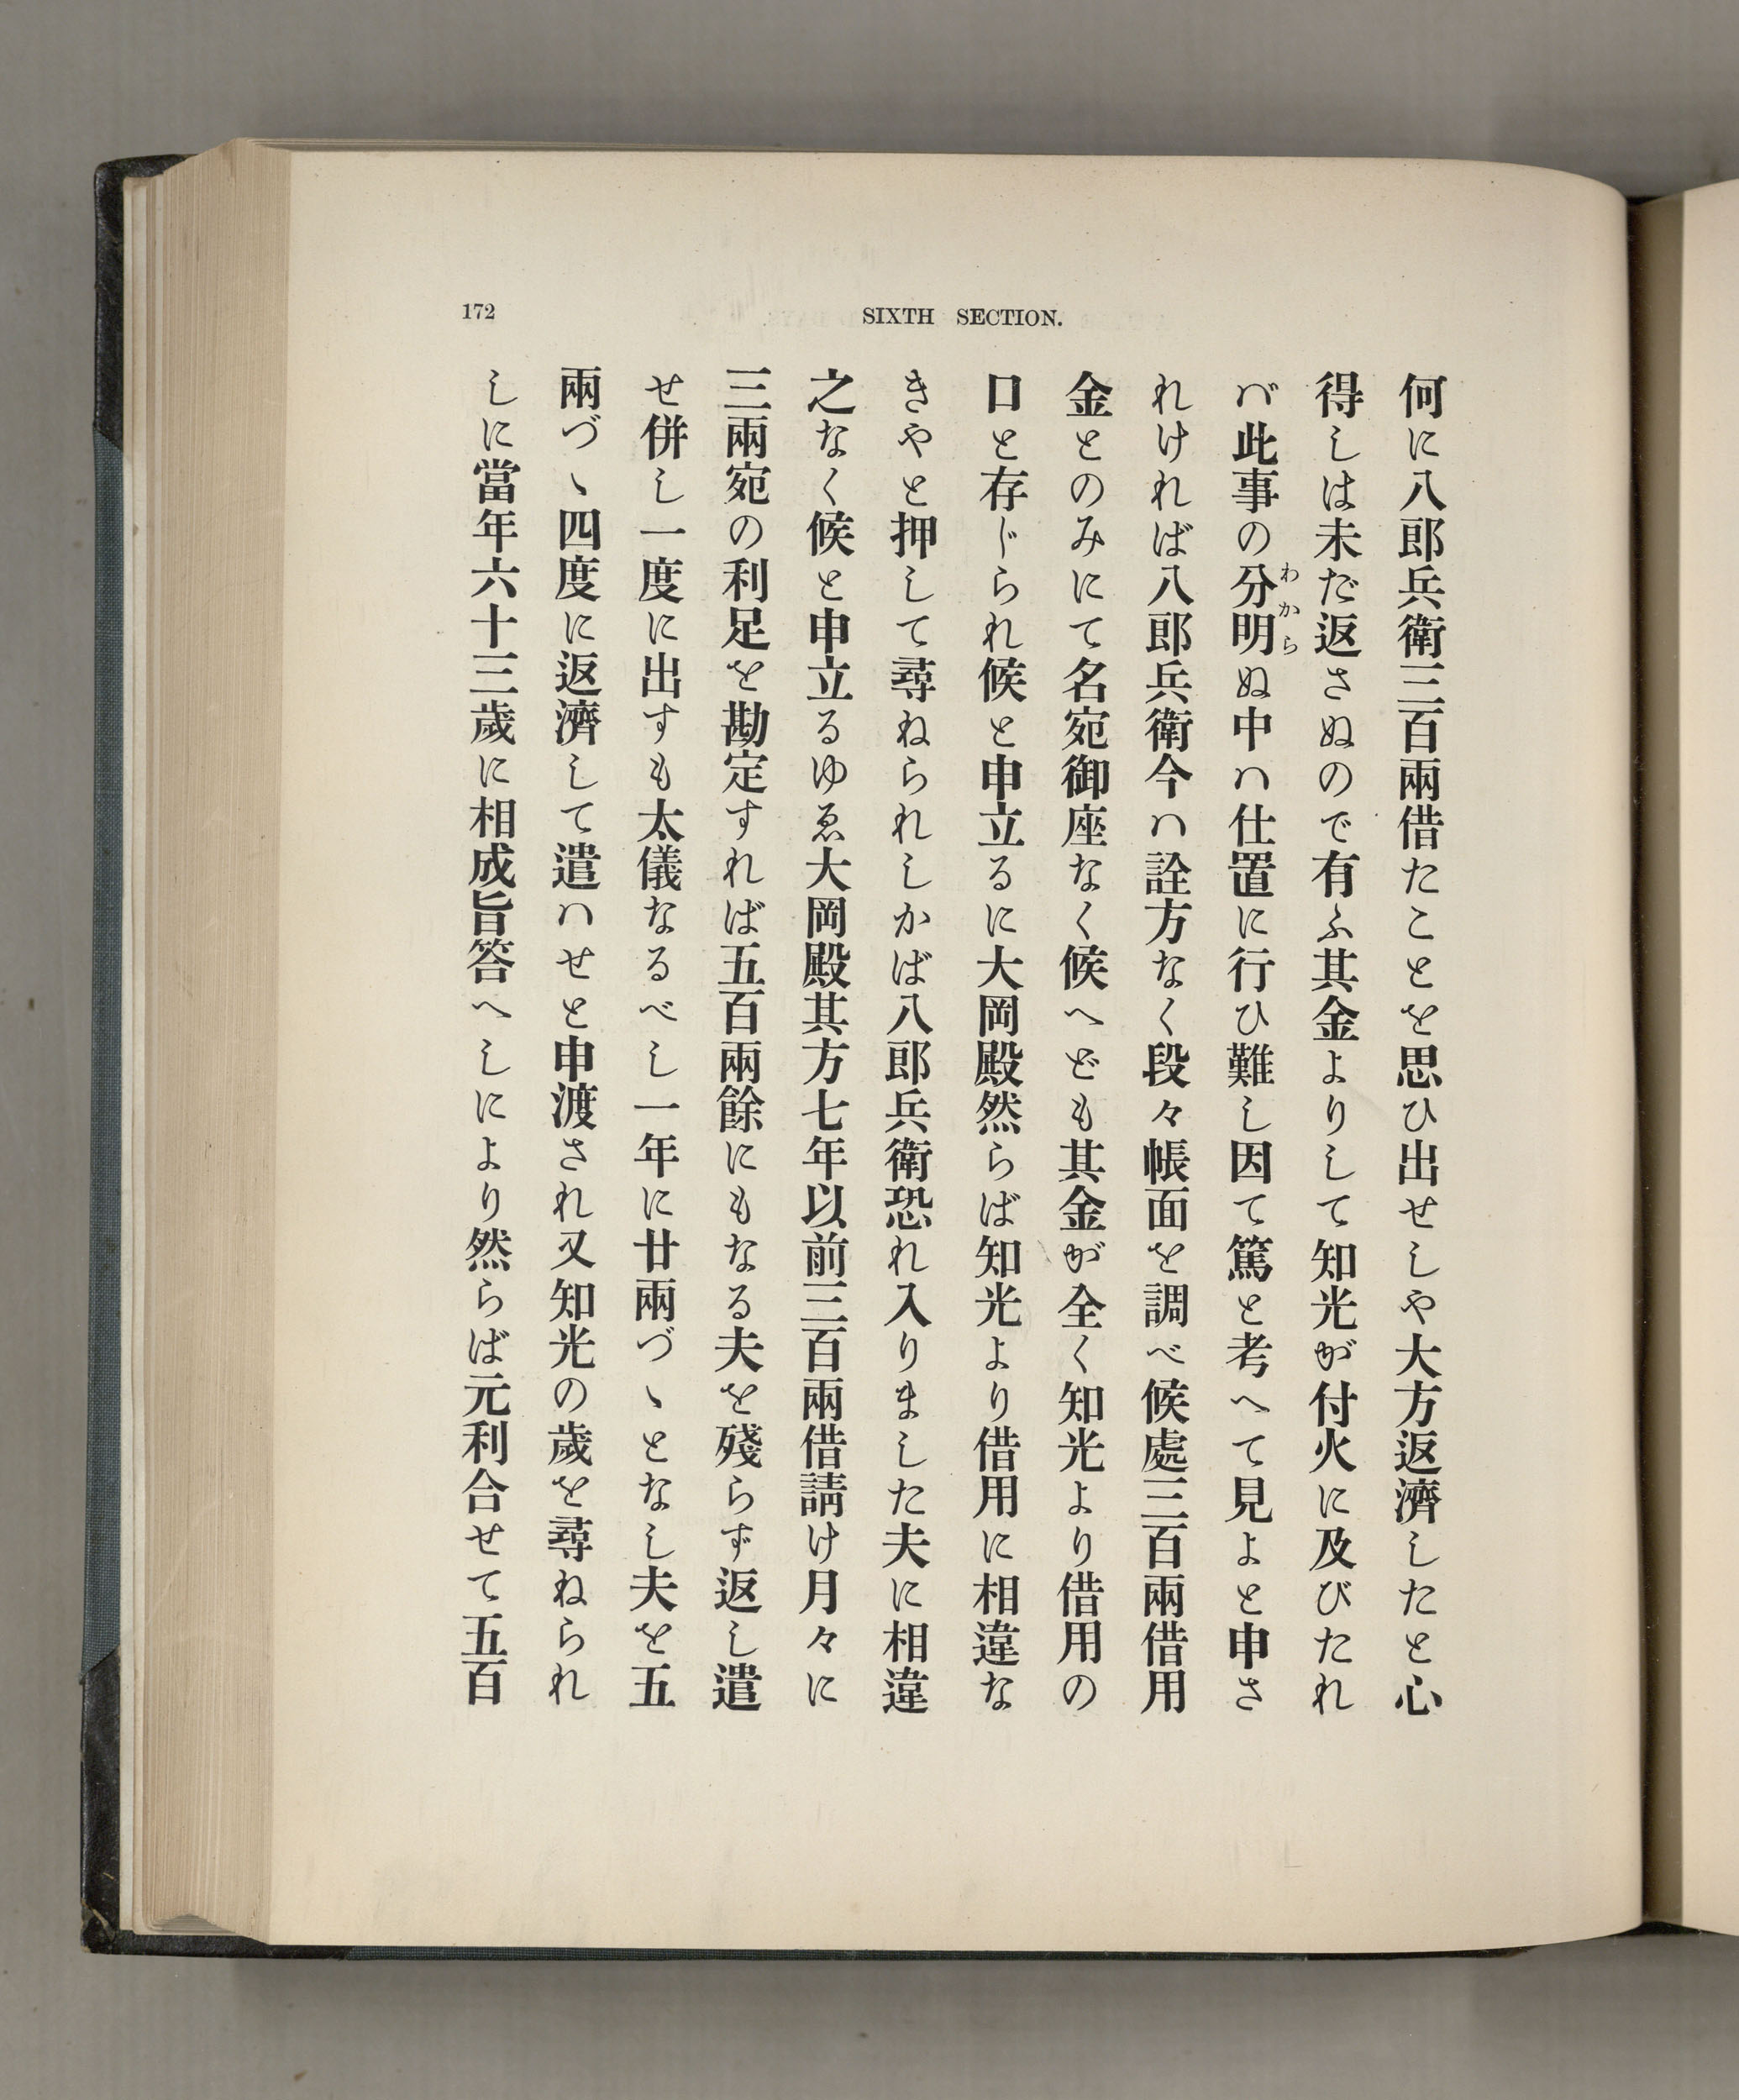 172 SIXTH SECTION.
何に八郎兵衛三百兩借たことを思ひ出せしや大方返濟したと心
得しは未だ返さぬので有ふ其金よりして知光が付火に及びたれ
バ此事の分明ぬ中ハ仕置に行ひ難し因て篤と考へて見よと申さ
わから
れければ八郎兵衛今ハ詮方なく段々帳面を調べ候處三百兩借用
金とのみにて名宛御座なく候へども其金が全く知光より借用の
口と存じられ候と申立るに大岡殿然らば知光より借用に相違な
きやと押して尋ねられしかば八郎兵衛恐れ入りました夫に相違
之なく候と申立るゆゑ大岡殿其方七年以前三百兩借請け月々に
三兩宛の利足を勘定すれば五百兩餘にもなる夫を殘らず返し遣
せ併し一度に出すも太儀なるべし一年に廿兩づゝとなし夫を五
兩づゝ四度に返濟して遣ハせと申渡され又知光の歲を尋ねられ
しに當年六十三歲に相成旨答へしにより然らば元利合せて五百